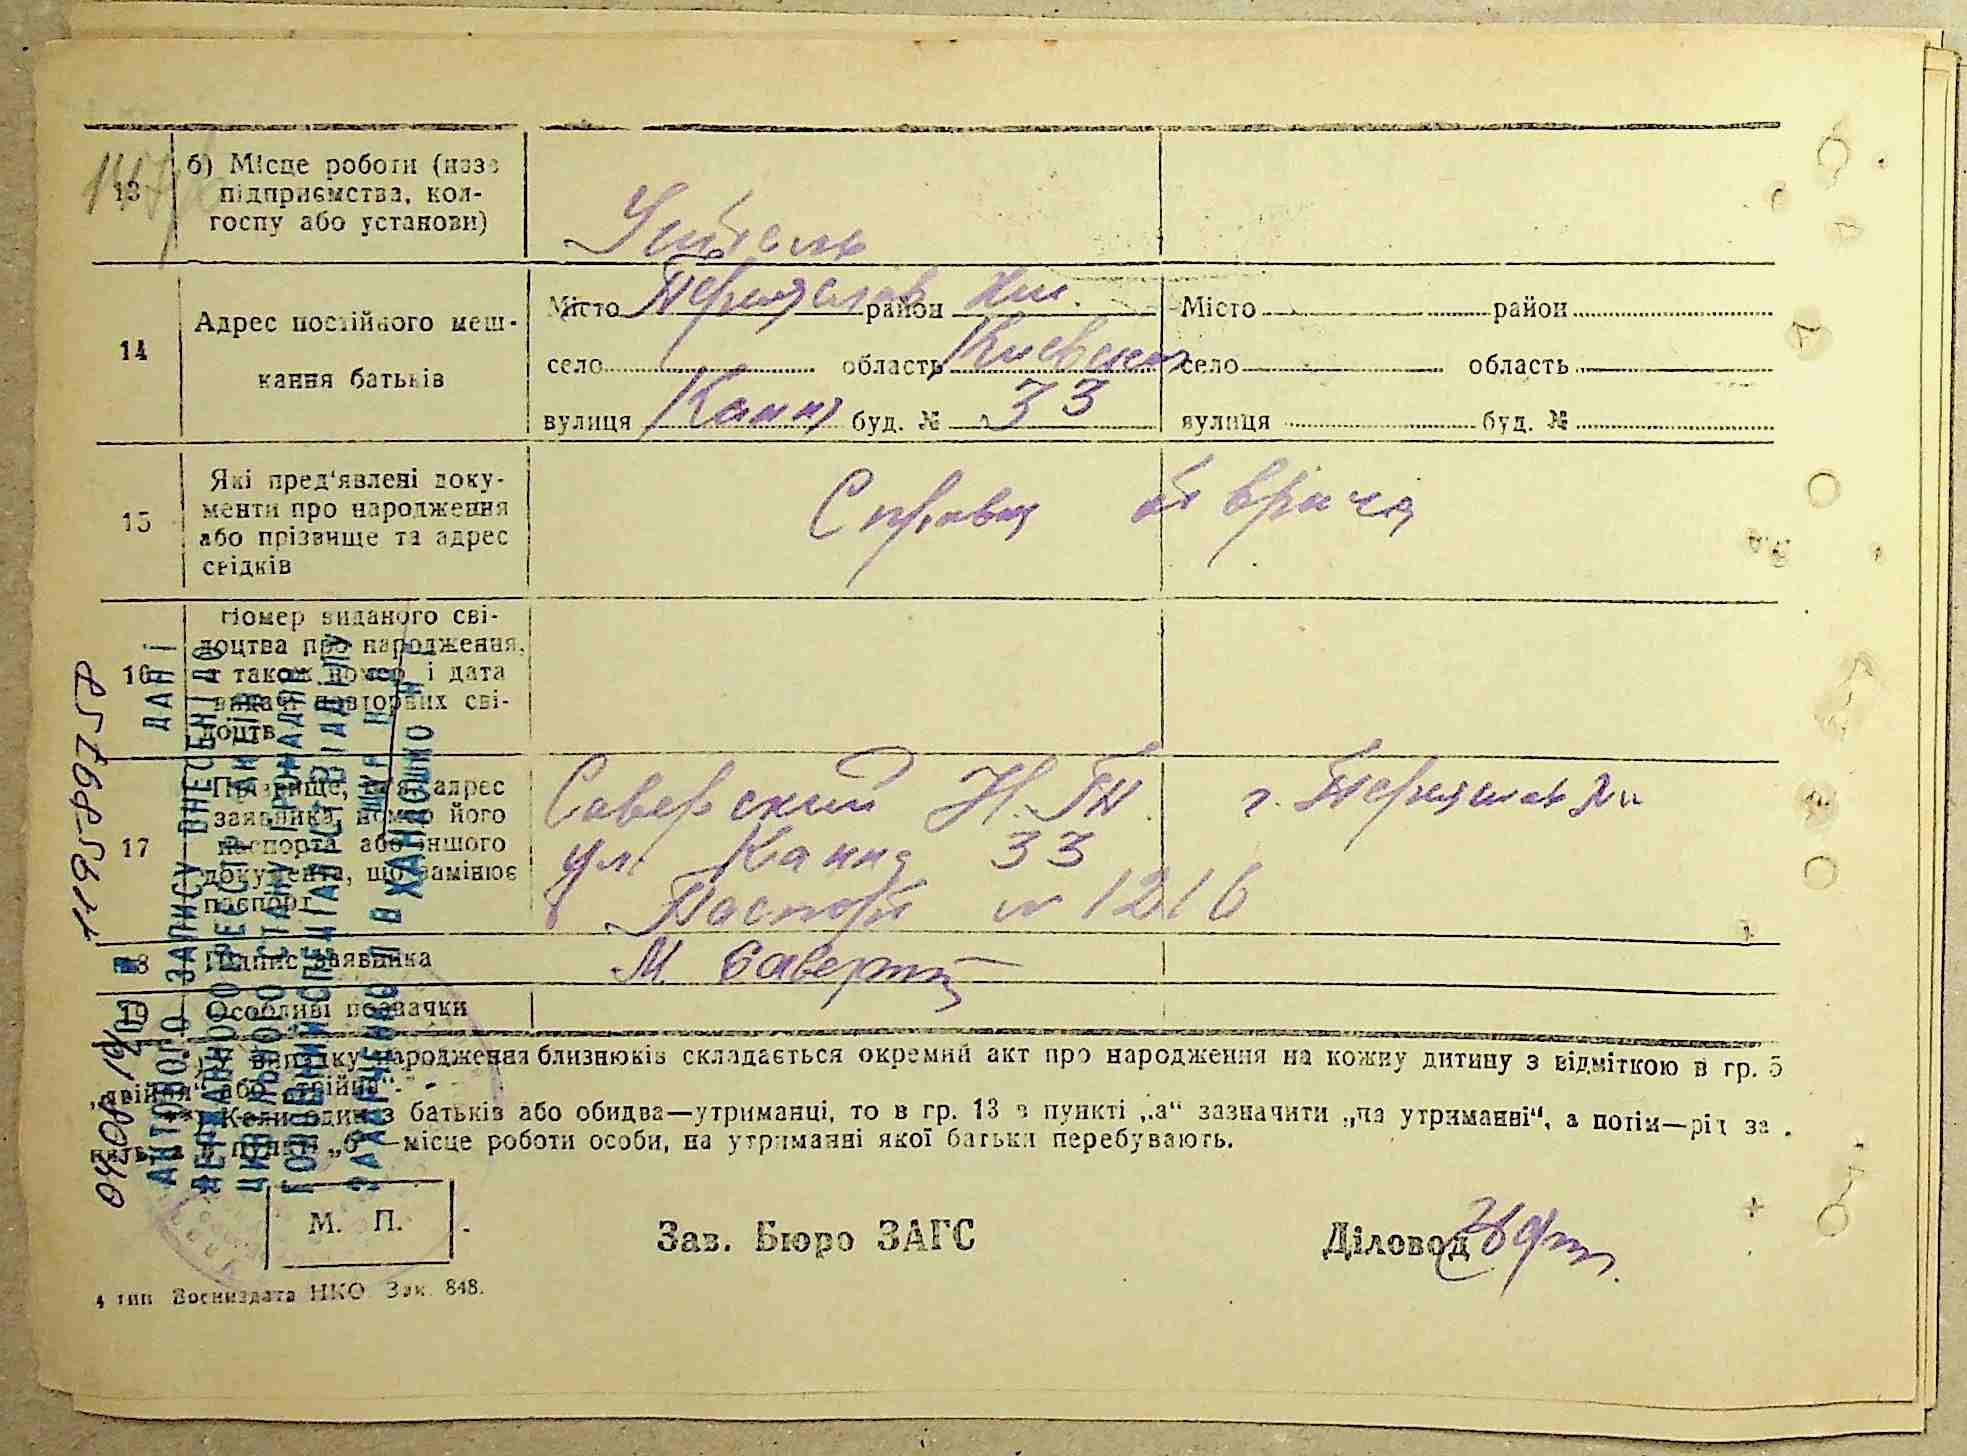 13
б) Місце роботи (назв
підприємства, кол-
госпу або установи)
Учитель
14
Адрес постійного меш-
кання батьків
Місто Переяслав район Хм.
село область Киевская
вулиця буд. № 33
Місто район
село область
вулиця буд. №
15
Які пред'явлені доку-
менти про народження
або прізвище та адрес
свідків
Справка от врача
16
Номер виданого сві-
доцтва про народження,
а також номер і дата
видачі повторних сві-
доцтв
17
Прізвище, ім'я, адрес
заявника, номер його
паспорта або іншого
документа, що замінює
паспорт
Саверский Н. г. Переяслав Хм
ул. 33
Паспорт № 1216
18 Підпис заявника
М
19 Особливі позначки
*) У випадку народження близнюків складається окремий акт про народження на кожну дитину з відміткою в гр. 5
„двійня“ або „трійня“.
**) Коли один з батьків або обидва—утриманці, то в гр. 13 в пункті „а“ зазначити „на утриманні“, а потім—рід за
в пункті „б“—місце роботи особи, на утриманні якої батьки перебувають.
М. П.
Зав. Бюро ЗАГС
Діловод
4 тип Воениздата НКО Зак. 848.
ДАНІ
АКТОВОГО ЗАПИСУ ВНЕСЕНІ ДО
ДЕРЖАВНОГО РЕЄСТРУ АКТІВ
ЦИВІЛЬНОГО СТАНУ ГРОМАДЯН
ГОЛОВНИЙ СПЕЦІАЛІСТ ВІДДІЛУ